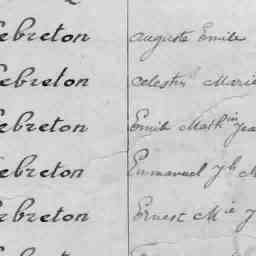 Lebreton Auguste Emile
Lebreton Celestin Marie
Lebreton Emile Math^in Jea
Lebreton Emmanuel J^h M
Lebreton Ernest M^ie J